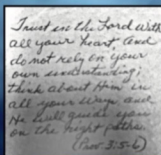 Trust in the Lord with
all your heart and
do not rely on your
own understanding;
think about Him in
all your ways and
He will guide you
on the right paths.
(Prov 3:5-6)